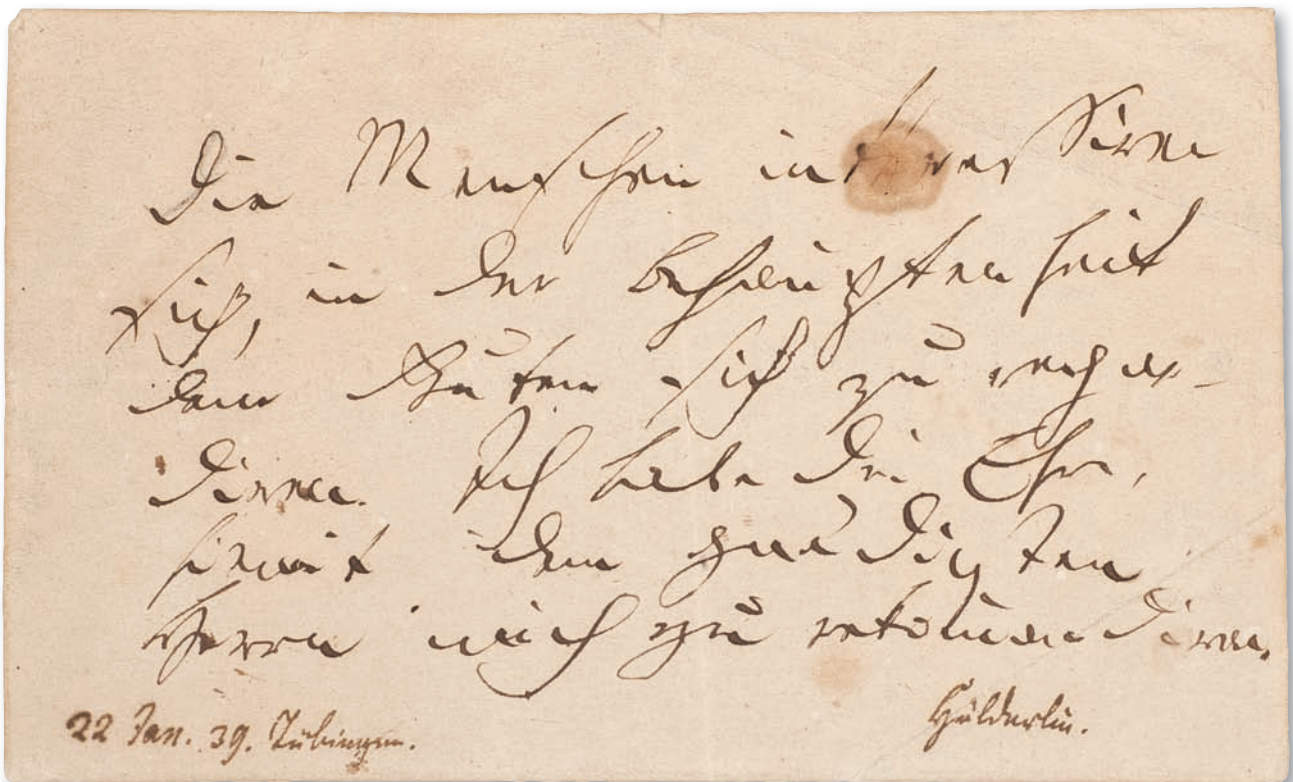 Die Menschen interessiren
sich, in der Behauptenheit
dem Guten sich zu regar-
diren. Ich habe die Ehre,
hiemit dem gnädigsten
Herrn mich zu rekomandiren.
22 Jan. 39. Tübingen.
Hölderlin.